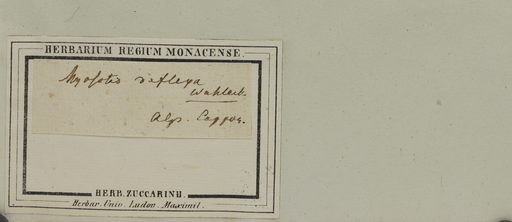 HERBARIUM REGIUM MONACENSE.
Myosotis deflexa
Wahlenb.
Alp. Lappon.
HERB. ZUCCARINII.
Herbar. Univ. Ludov. Maximil.